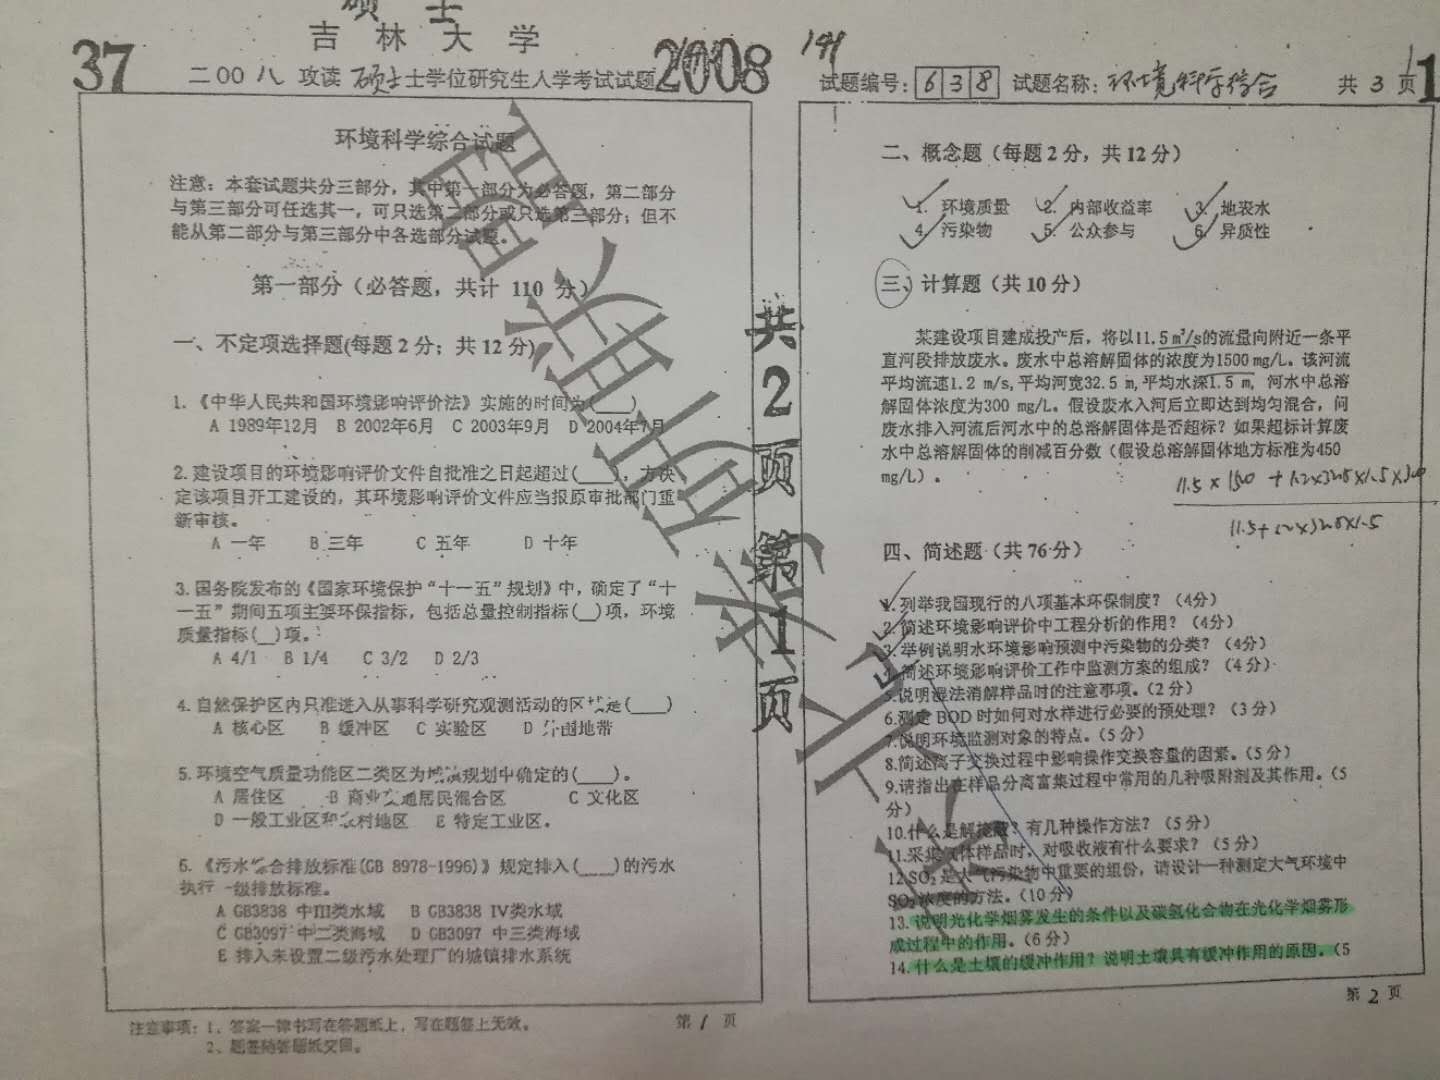 硕 士
吉 林 大 学
37
二00八 攻读硕士士学位研究生入学考试试题
2008
试题编号: 638 试题名称: 环境科学综合 共 3 页
1
环境科学综合试题
注意：本套试题共分三部分，其中第一部分为必答题，第二部分
与第三部分可任选其一，可只选第二部分或只选第三部分；但不
能从第二部分与第三部分中各选部分试题。
第一部分（必答题，共计 110 分）
一、不定项选择题(每题 2 分；共 12 分)
1.《中华人民共和国环境影响评价法》实施的时间为(____)
A 1989年12月 B 2002年6月 C 2003年9月 D 2004年7月
2. 建设项目的环境影响评价文件自批准之日起超过(____)，方决
定该项目开工建设的，其环境影响评价文件应当报原审批部门重
新审核。
A 一年 B 三年 C 五年 D 十年
3. 国务院发布的《国家环境保护“十一五”规划》中，确定了“十
一五”期间五项主要环保指标，包括总量控制指标(__)项，环境
质量指标(__)项。
A 4/1 B 1/4 C 3/2 D 2/3
4. 自然保护区内只准进入从事科学研究观测活动的区域是(____)
A 核心区 B 缓冲区 C 实验区 D 外围地带
5. 环境空气质量功能区二类区为城镇规划中确定的(____)。
A 居住区 B 商业交通居民混合区 C 文化区
D 一般工业区和农村地区 E 特定工业区。
6.《污水综合排放标准(GB 8978-1996)》规定排入(____)的污水
执行一级排放标准。
A GB3838 中III类水域 B GB3838 IV类水域
C GB3097 中二类海域 D GB3097 中三类海域
E 排入未设置二级污水处理厂的城镇排水系统
注意事项：1、答案一律书写在答题纸上，写在题签上无效。
2、题签随答题纸交回。
第 1 页
共2页 第1页
二、概念题（每题 2 分，共 12 分）
1. 环境质量 2. 内部收益率 3. 地表水
4. 污染物 5. 公众参与 6. 异质性
三、计算题（共 10 分）
某建设项目建成投产后，将以11.5 m³/s的流量向附近一条平
直河段排放废水。废水中总溶解固体的浓度为1500 mg/L。该河流
平均流速1.2 m/s,平均河宽32.5 m,平均水深1.5 m, 河水中总溶
解固体浓度为300 mg/L。假设废水入河后立即达到均匀混合，问
废水排入河流后河水中的总溶解固体是否超标？如果超标计算废
水中总溶解固体的削减百分数（假设总溶解固体地方标准为450
mg/L）。
四、简述题（共 76 分）
1.列举我国现行的八项基本环保制度？（4分）
2.简述环境影响评价中工程分析的作用？（4分）
3.举例说明水环境影响预测中污染物的分类？（4分）
4.简述环境影响评价工作中监测方案的组成？（4 分）
5.说明湿法消解样品时的注意事项。（2 分）
6.测定 BOD 时如何对水样进行必要的预处理？（3 分）
7.说明环境监测对象的特点。（5 分）
8.简述离子交换过程中影响操作交换容量的因素。（5 分）
9.请指出在样品分离富集过程中常用的几种吸附剂及其作用。（5
分）
10.什么是解掩蔽？有几种操作方法？（5 分）
11.采集气体样品时，对吸收液有什么要求？（5 分）
12.SO₂是大气污染物中重要的组份，请设计一种测定大气环境中
SO₂浓度的方法。（10 分）
13. 说明光化学烟雾发生的条件以及碳氢化合物在光化学烟雾形
成过程中的作用。（6 分）
14.什么是土壤的缓冲作用？说明土壤具有缓冲作用的原因。（5
第 2 页